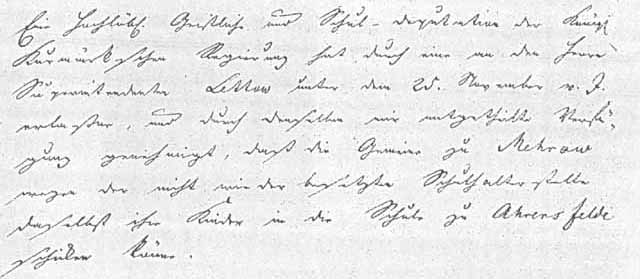 Ein Hochlöbl. Geistliche und Schul-deputation der Königl.
Kurmärkschen Regierung hat durch eine an den Herrn
Superintendenten Lettow unter dem 25. November v. J.
erlaßne, und durch denselben mir mitgetheilte Verfü-
gung genehmigt, daß die Gemeine zu Mehrow
wegen der nicht wieder besetzten Schulhalterstelle
daselbst ihre Kinder in die Schule zu Ahrensfelde
schicken könne.